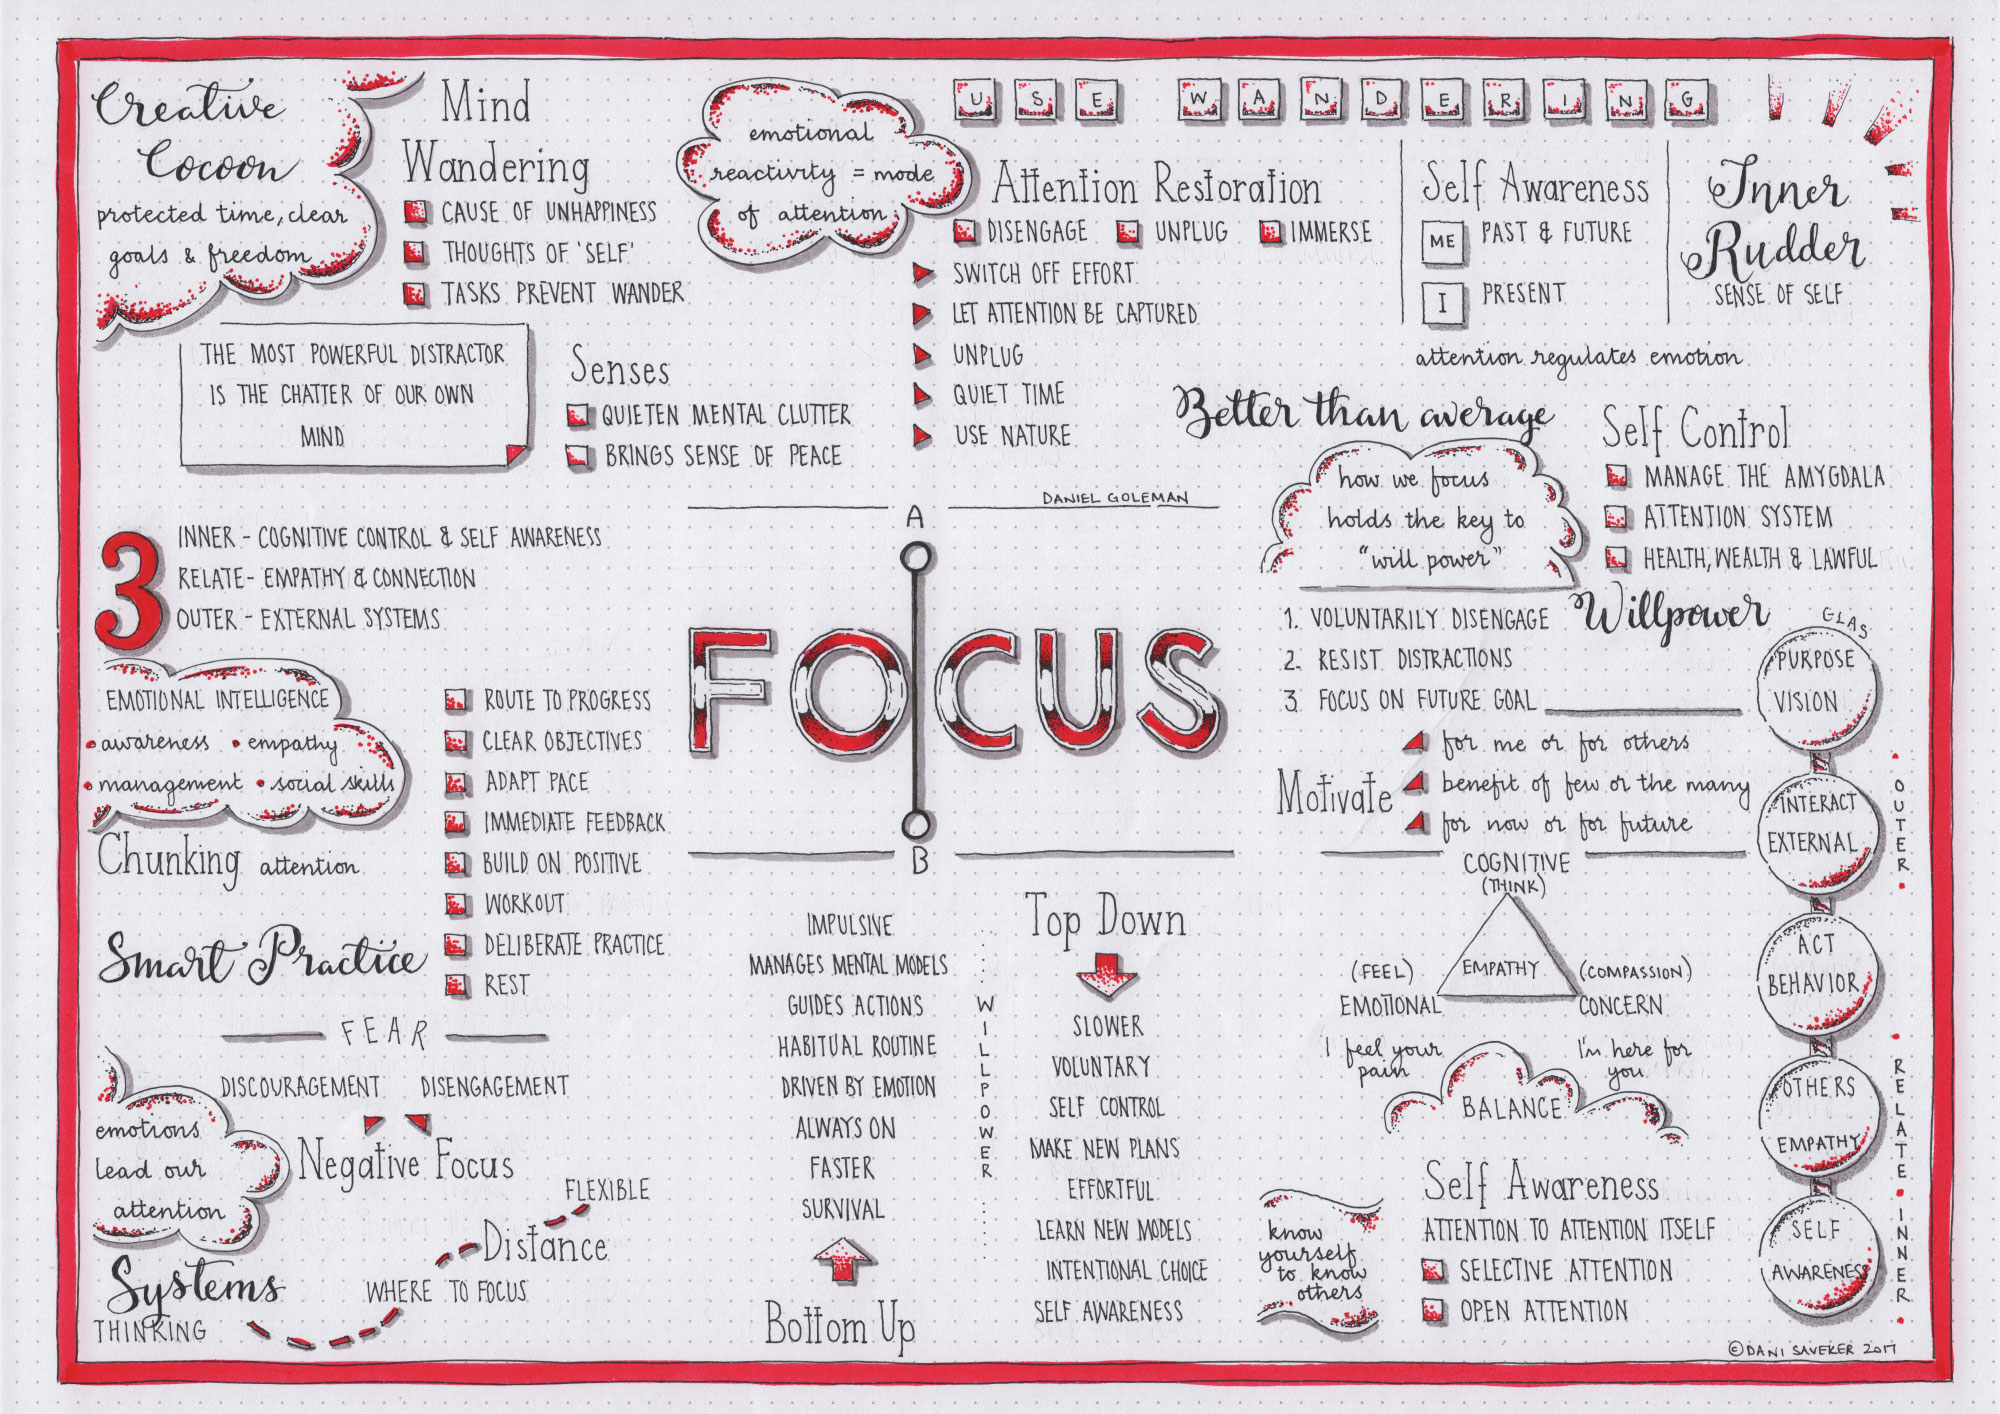 Creative
Cocoon
protected time, clear
goals & freedom
Mind
Wandering
CAUSE OF UNHAPPINESS
THOUGHTS OF 'SELF'
TASKS PREVENT WANDER
emotional
reactivity = mode
of attention
USE WANDERING
Attention Restoration
DISENGAGE UNPLUG IMMERSE
SWITCH OFF EFFORT
LET ATTENTION BE CAPTURED
UNPLUG
QUIET TIME
USE NATURE
Self Awareness
ME PAST & FUTURE
I PRESENT
attention regulates emotion
Inner
Rudder
SENSE OF SELF
THE MOST POWERFUL DISTRACTOR
IS THE CHATTER OF OUR OWN
MIND
Senses
QUIETEN MENTAL CLUTTER
BRINGS SENSE OF PEACE
Better than average
how we focus
holds the key to
"will power"
Self Control
MANAGE THE AMYGDALA
ATTENTION SYSTEM
HEALTH, WEALTH & LAWFUL
DANIEL GOLEMAN
A
FOCUS
B
3
INNER - COGNITIVE CONTROL & SELF AWARENESS
RELATE - EMPATHY & CONNECTION
OUTER - EXTERNAL SYSTEMS
EMOTIONAL INTELLIGENCE
• awareness • empathy
• management • social skills
Chunking attention
Smart Practice
ROUTE TO PROGRESS
CLEAR OBJECTIVES
ADAPT PACE
IMMEDIATE FEEDBACK
BUILD ON POSITIVE
WORKOUT
DELIBERATE PRACTICE
REST
Willpower
1. VOLUNTARILY DISENGAGE
2. RESIST DISTRACTIONS
3. FOCUS ON FUTURE GOAL
Motivate
for me or for others
benefit of few or the many
for now or for future
COGNITIVE
(THINK)
EMPATHY
(FEEL)
EMOTIONAL
(COMPASSION)
CONCERN
I feel your
pain
I'm here for
you
BALANCE
GLAS
PURPOSE
VISION
INTERACT
EXTERNAL
ACT
BEHAVIOR
OTHERS
EMPATHY
SELF
AWARENESS
• OUTER •
• RELATE • INNER •
FEAR
DISCOURAGEMENT DISENGAGEMENT
Negative Focus
emotions
lead our
attention
Systems
THINKING
WHERE TO FOCUS
Distance
FLEXIBLE
IMPULSIVE
MANAGES MENTAL MODELS
GUIDES ACTIONS
HABITUAL ROUTINE
DRIVEN BY EMOTION
ALWAYS ON
FASTER
SURVIVAL
Bottom Up
WILLPOWER
Top Down
SLOWER
VOLUNTARY
SELF CONTROL
MAKE NEW PLANS
EFFORTFUL
LEARN NEW MODELS
INTENTIONAL CHOICE
SELF AWARENESS
know
yourself
to know
others
Self Awareness
ATTENTION TO ATTENTION ITSELF
SELECTIVE ATTENTION
OPEN ATTENTION
© DANI SAVEKER 2017